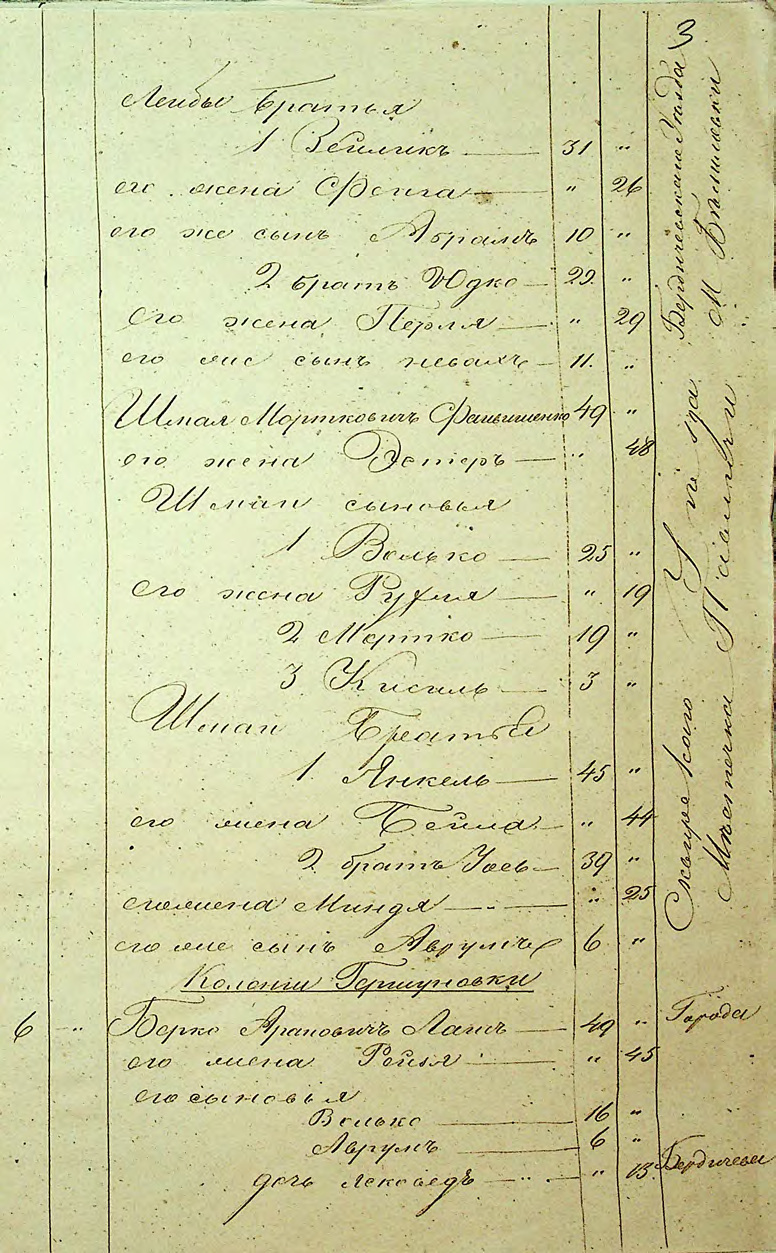 3
Лейбы Братья
1 Зейликъ — 31 "
его жена Фейга — " 26
его же сынъ Абрамъ 10 "
2 братъ Юдко — 29. "
Его жена Перля — " 29
его же сынъ — 11. "
Шмая Мортковичъ 49 "
его жена Эстеръ — " 48
Шмаи сыновья
1 Волько — 25 "
Его жена Рухля — " 19
2 Мортко — 19 "
3 Кисиль — 3 "
Шмаи Братья
1. Янкель — 45 "
его жена Бейла — " 44
2 братъ Іосъ — 39 "
его жена Миндя — " 25
его же сынъ Аврумъ 6 "
Колоніи Гершуновки
6 " Берко Ароновичъ — 49 "
его жена Рейзя — " 45
его сыновья
Волько — 16 "
Аврумъ — 6 "
дочь — " 13
Бердичевскаго Уѣзда
М
Сквирскаго Уѣзда
Мѣстечка Паволочи
Города
Бердичева